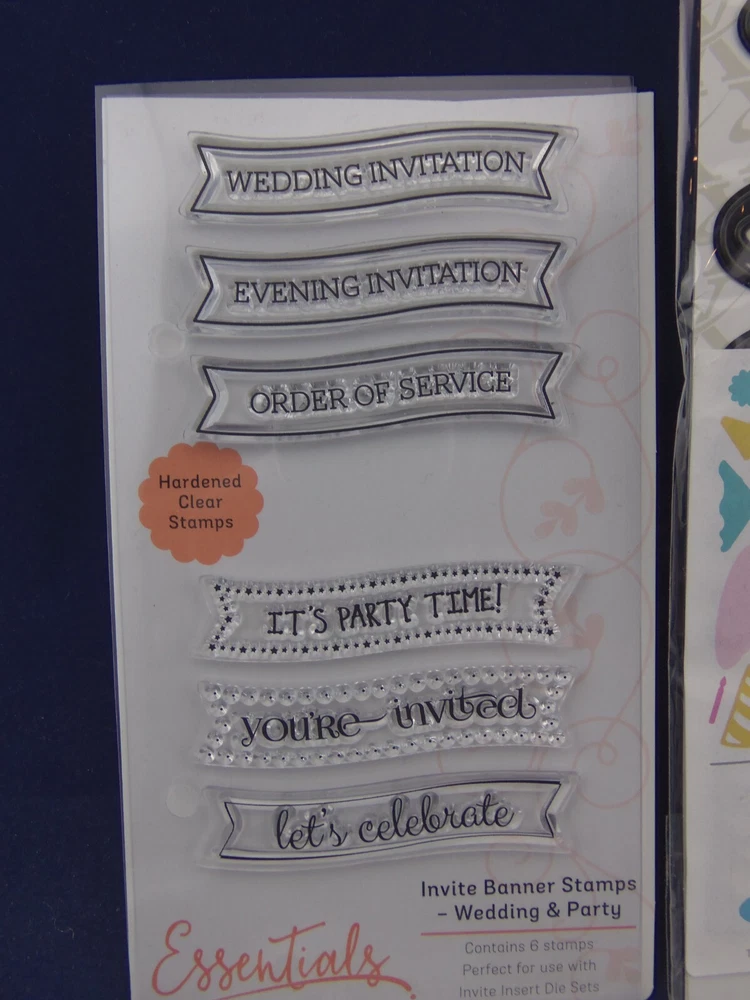 WEDDING INVITATION
EVENING INVITATION
ORDER OF SERVICE
Hardened
Clear
Stamps
IT'S PARTY TIME!
you're invited
let's celebrate
Invite Banner Stamps
– Wedding & Party
Essentials
Contains 6 stamps
Perfect for use with
Invite Insert Die Sets